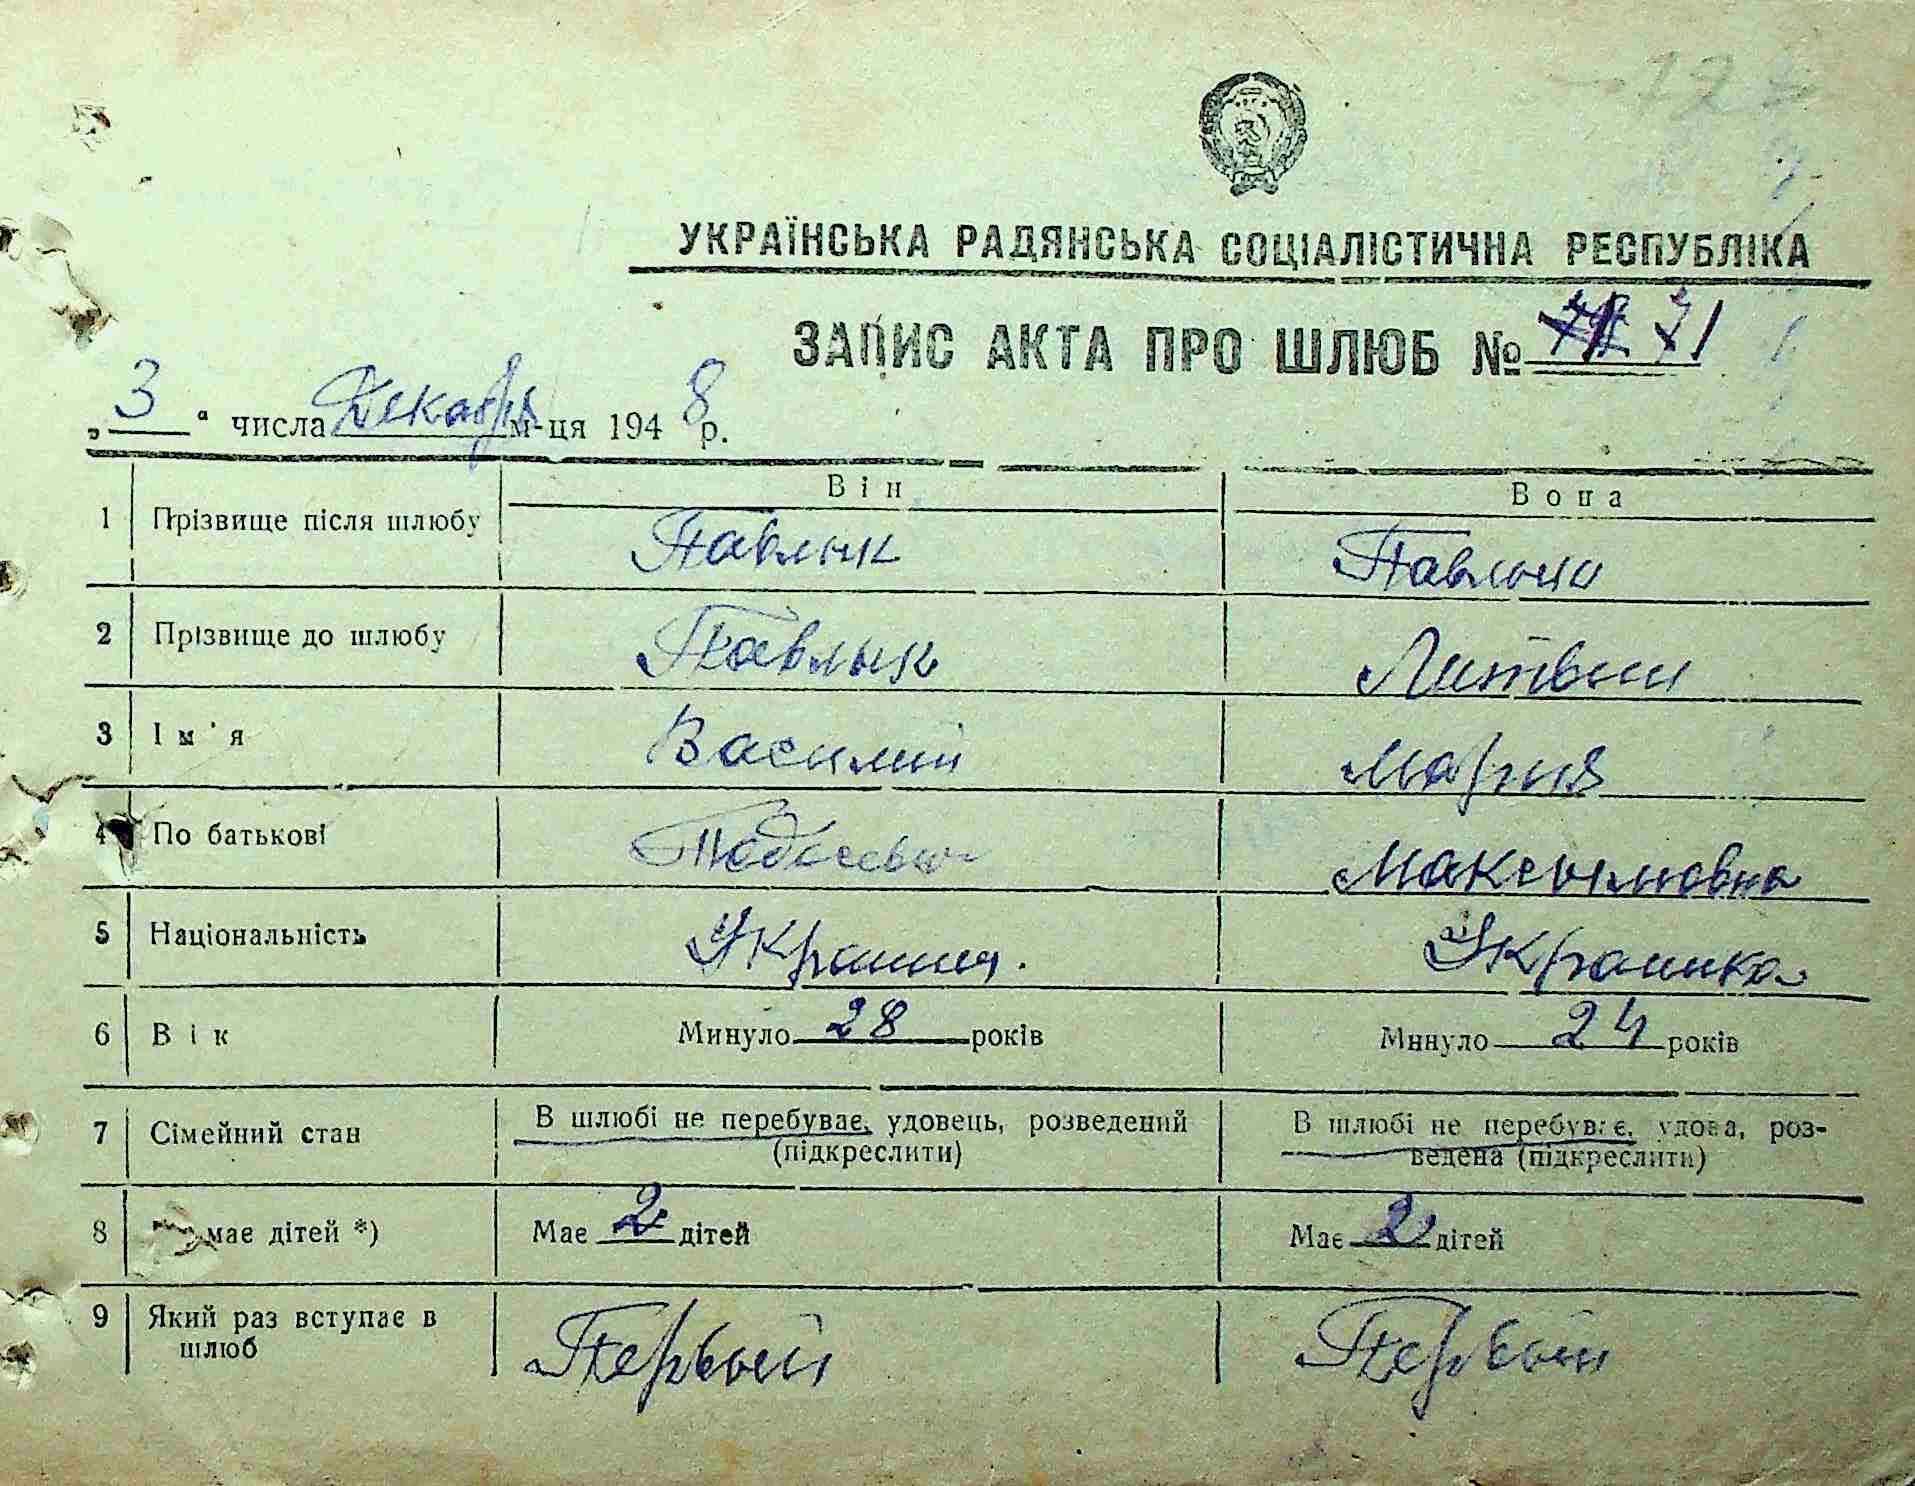 УКРАЇНСЬКА РАДЯНСЬКА СОЦІАЛІСТИЧНА РЕСПУБЛІКА
ЗАПИС АКТА ПРО ШЛЮБ № 71
„3“ числа Декабря м-ця 1948 р.
Він Вона
1 Прізвище після шлюбу Павлык Павлык
2 Прізвище до шлюбу Павлык Литвин
3 Ім'я Василий Мария
4 По батькові Максымовна
5 Національність Украинец. Украинка
6 Вік Минуло 28 років Минуло 24 років
7 Сімейний стан В шлюбі не перебуває, удовець, розведений В шлюбі не перебуває, удова, роз-
(підкреслити) ведена (підкреслити)
8 має дітей *) Має 2 дітей Має 2 дітей
9 Який раз вступає в Первый Первый
шлюб